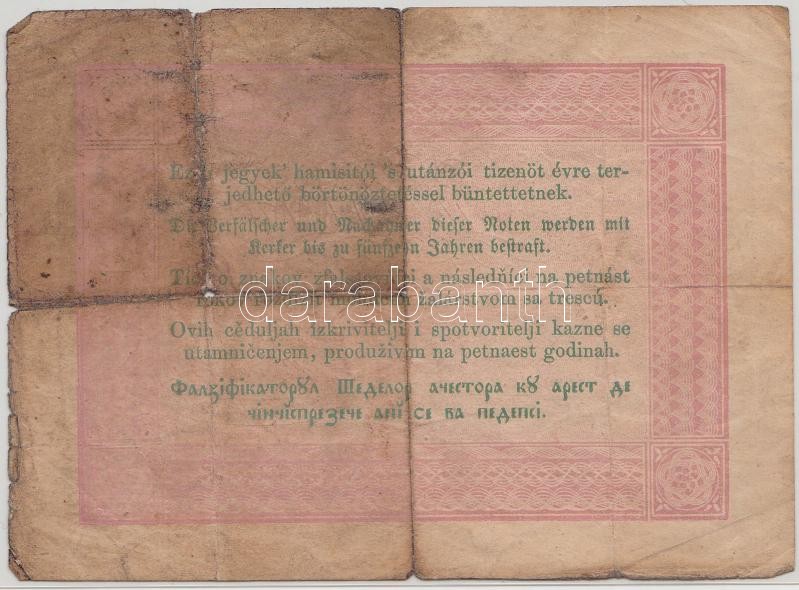 jegyek' hamisitói 's utánzói tizenöt évre ter-
jedhető börtönöztetéssel büntettetnek.
Die Verfälscher und Nachahmer dieser Noten werden mit
Kerker bis zu fünfzehn Jahren bestraft.
a následňíci na petnást
žalárstvom sa trescú.
Ovih cěduljah izkrivitelji i spotvoritelji kazne se
utamničenjem, produživim na petnaest godinah.
Фалzіфікаторꙋл Шеделор ачестора кꙋ арест де
чінчіспрезече анĭ се ва педепсі.
darabanth